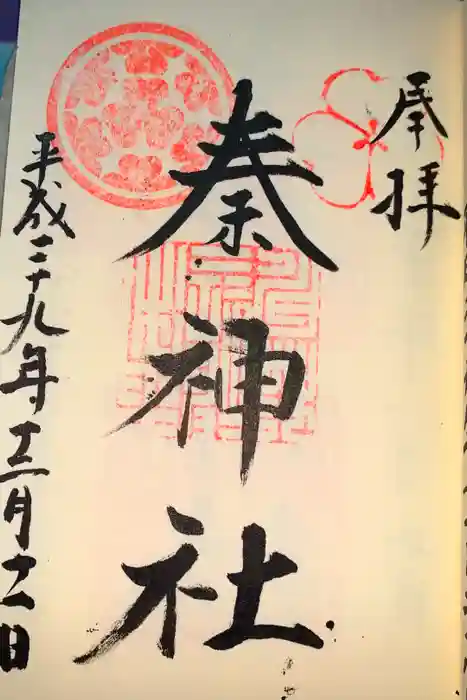 奉拝
秦神社
平成二十九年十二月十一日